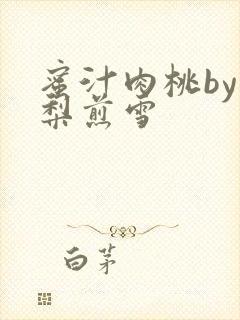 蜜汁肉桃by
梨煎雪
白茅